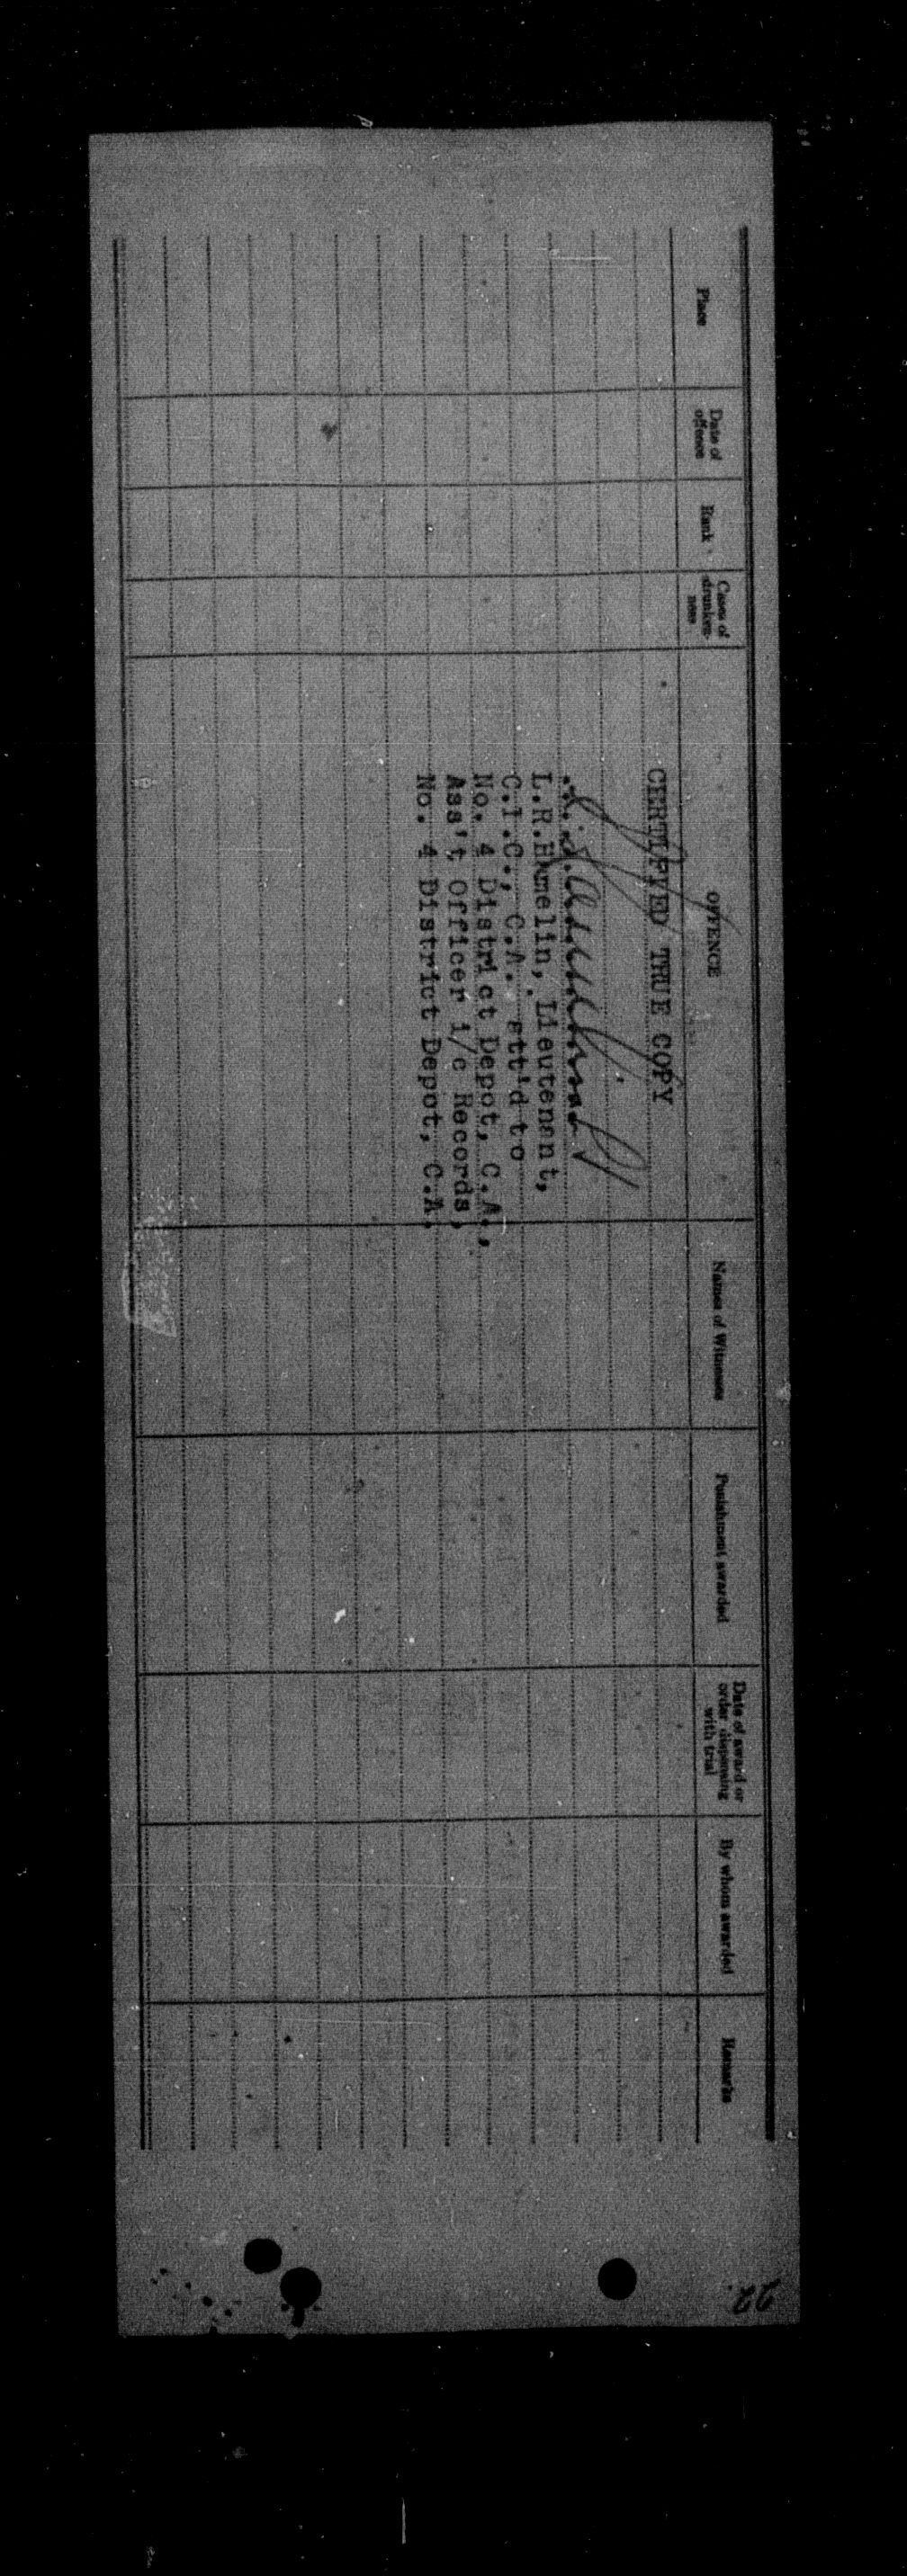 Place
Date of
offence
Rank
Cases of
drunken-
ness
OFFENCE
Names of Witnesses
Punishment awarded
Date of award or
order dispensing
with trial
By whom awarded
Remarks
CERTIFIED TRUE COPY
L.R.Hamelin, Lieutenant,
C.I.C., C.A. att'd to
No. 4 District Depot, C.A.,
Ass't Officer i/c Records,
No. 4 District Depot, C.A.
22.